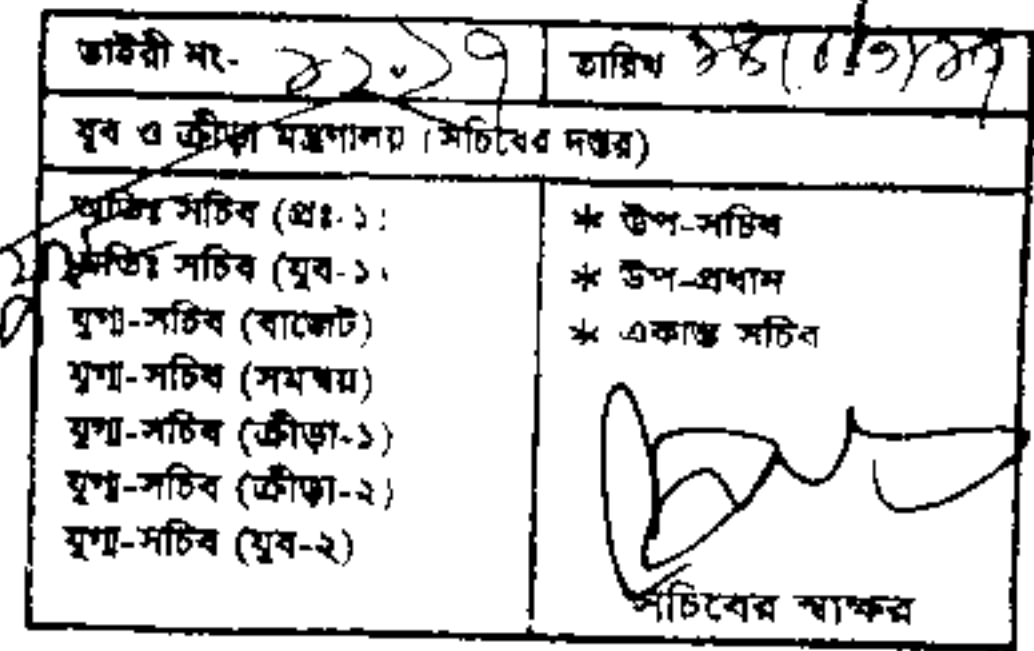 ডাইরী নং- ১২০১৭ তারিখ
যুব ও ক্রীড়া মন্ত্রণালয় (সচিবের দপ্তর)
অতিঃ সচিব (প্রঃ-১)
অতিঃ সচিব (যুব-১)
যুগ্ম-সচিব (বাজেট)
যুগ্ম-সচিব (সমন্বয়)
যুগ্ম-সচিব (ক্রীড়া-১)
যুগ্ম-সচিব (ক্রীড়া-২)
যুগ্ম-সচিব (যুব-২)
* উপ-সচিব
* উপ-প্রধান
* একান্ত সচিব
সচিবের স্বাক্ষর